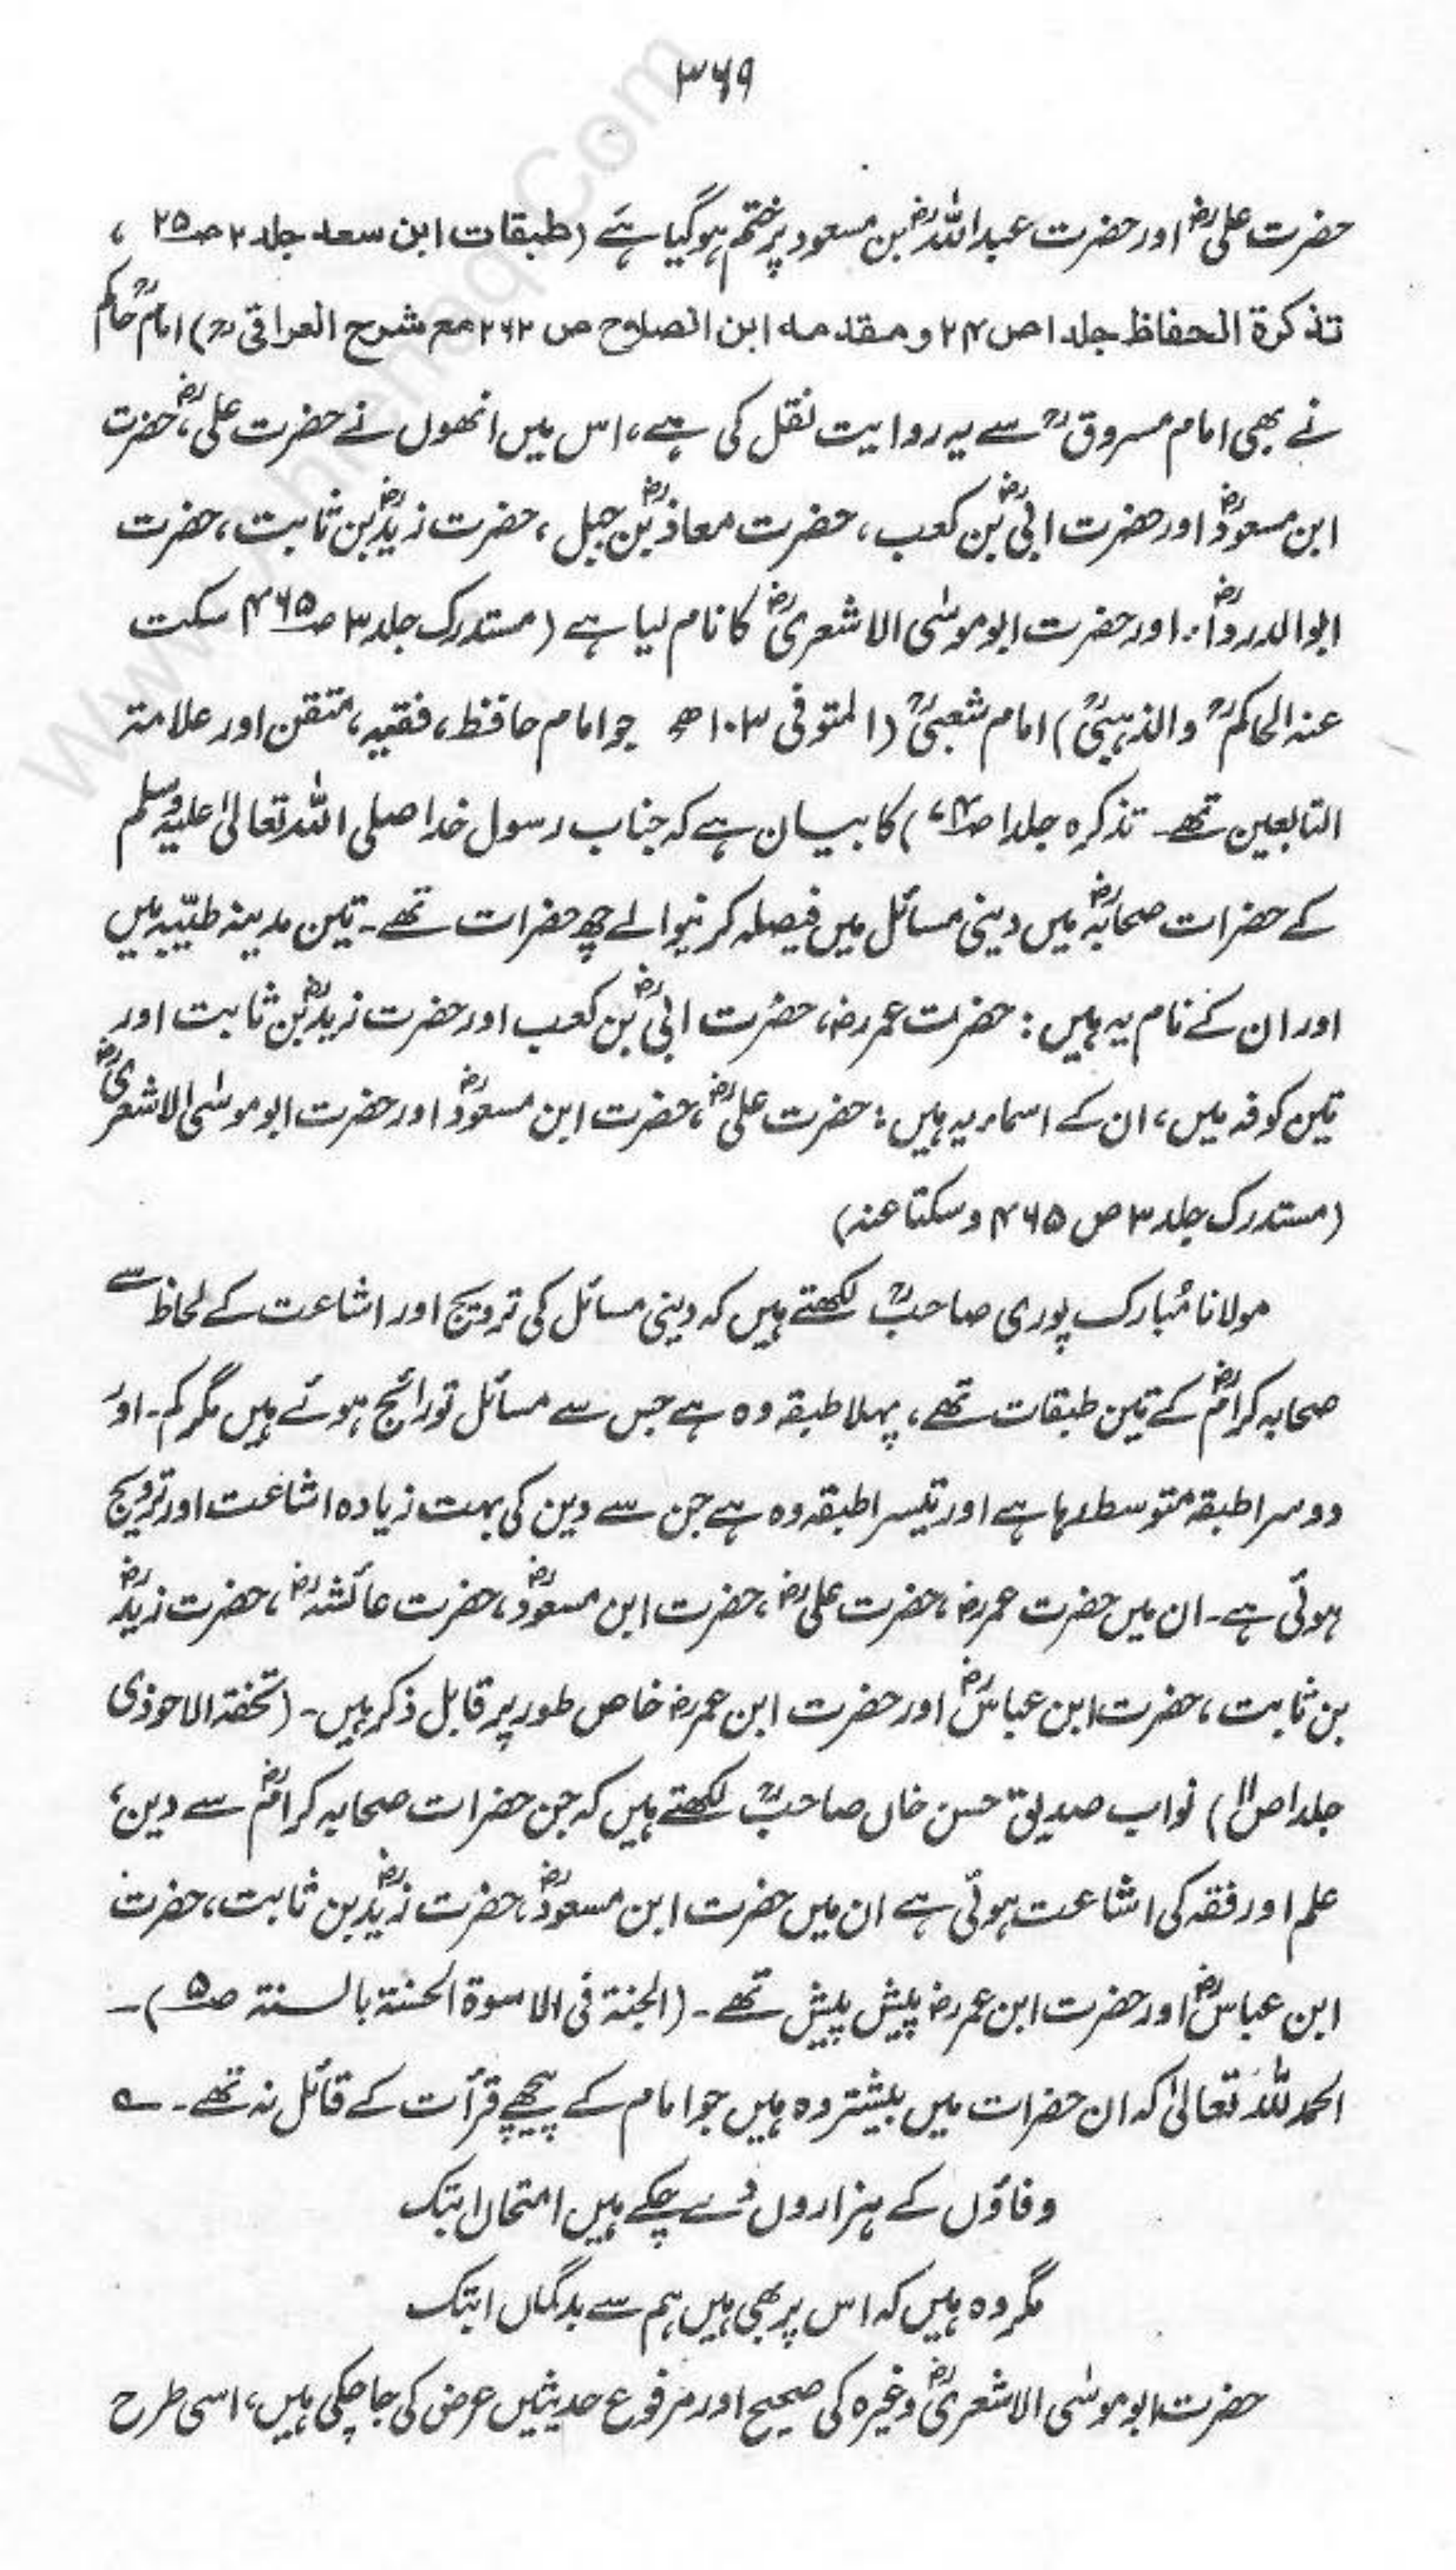 ۳۶۹
حضرت علیؓ اور حضرت عبداللہؓ بن مسعود پر ختم ہوگیا ہے (طبقات ابن سعد جلد ۲ ص۲۵ ،
تذکرة الحفاظ جلد ۱ ص ۲۴ و مقدمه ابن الصلاح ص ۲۶۲ مع شرح العراقیؒ) امام حاکمؒ
نے بھی امام مسروقؒ سے یہ روایت نقل کی ہے، اس میں انھوں نے حضرت علیؓ، حضرت
ابن مسعودؓ اور حضرت ابیؓ بن کعب، حضرت معاذؓ بن جبل، حضرت زیدؓ بن ثابت، حضرت
ابوالدرداءؓ اور حضرت ابو موسٰی الاشعریؓ کا نام لیا ہے (مستدرک جلد ۳ ص۴۶۵ سکت
عنہ الحاکمؒ والذہبیؒ) امام شعبیؒ (المتوفی ۱۰۳ھ جو امام حافظ، فقیہ، متقن اور علامۃ
التابعین تھے۔ تذکرہ جلد ۱ ص) کا بیان ہے کہ جناب رسول خدا صلی اللہ تعالیٰ علیہ وسلم
کے حضرات صحابہؓ میں دینی مسائل میں فیصلہ کرنیوالے چھ حضرات تھے۔ تین مدینہ طیّبہ میں
اور ان کے نام یہ ہیں: حضرت عمرؓ، حضرت ابیؓ بن کعب اور حضرت زیدؓ بن ثابت اور
تین کوفہ میں، ان کے اسماء یہ ہیں: حضرت علیؓ، حضرت ابن مسعودؓ اور حضرت ابو موسٰی الاشعریؓ
(مستدرک جلد ۳ ص ۴۶۵ وسکتا عنہ)
مولانا مُبارک پوری صاحبؒ لکھتے ہیں کہ دینی مسائل کی ترویج اور اشاعت کے لحاظ سے
صحابہ کرامؓ کے تین طبقات تھے، پہلا طبقہ وہ ہے جس سے مسائل تو رائج ہوئے ہیں مگر کم۔ اور
دوسرا طبقہ متوسط رہا ہے اور تیسرا طبقہ وہ ہے جن سے دین کی بہت زیادہ اشاعت اور ترویج
ہوئی ہے۔ ان میں حضرت عمرؓ، حضرت علیؓ، حضرت ابن مسعودؓ، حضرت عائشہؓ، حضرت زیدؓ
بن ثابت، حضرت ابن عباسؓ اور حضرت ابن عمرؓ خاص طور پر قابل ذکر ہیں۔ (تحفۃ الاحوذی
جلد ۱ ص۱۱) نواب صدیق حسن خاں صاحبؒ لکھتے ہیں کہ جن حضرات صحابہ کرامؓ سے دین،
علم اور فقہ کی اشاعت ہوئی ہے ان میں حضرت ابن مسعودؓ، حضرت زیدؓ بن ثابت، حضرت
ابن عباسؓ اور حضرت ابن عمرؓ پیش پیش تھے۔ (الجنۃ فی الاسوۃ الحسنۃ بالسنۃ ص۵)۔
الحمد للہ تعالیٰ کہ ان حضرات میں بیشتر وہ ہیں جو امام کے پیچھے قرأت کے قائل نہ تھے۔ ؎
وفاؤں کے ہزاروں دے چکے ہیں امتحاں ابتک
مگر وہ ہیں کہ اس پر بھی ہیں ہم سے بدگماں ابتک
حضرت ابو موسٰی الاشعریؓ وغیرہ کی صحیح اور مرفوع حدیثیں عرض کی جاچکی ہیں، اسی طرح